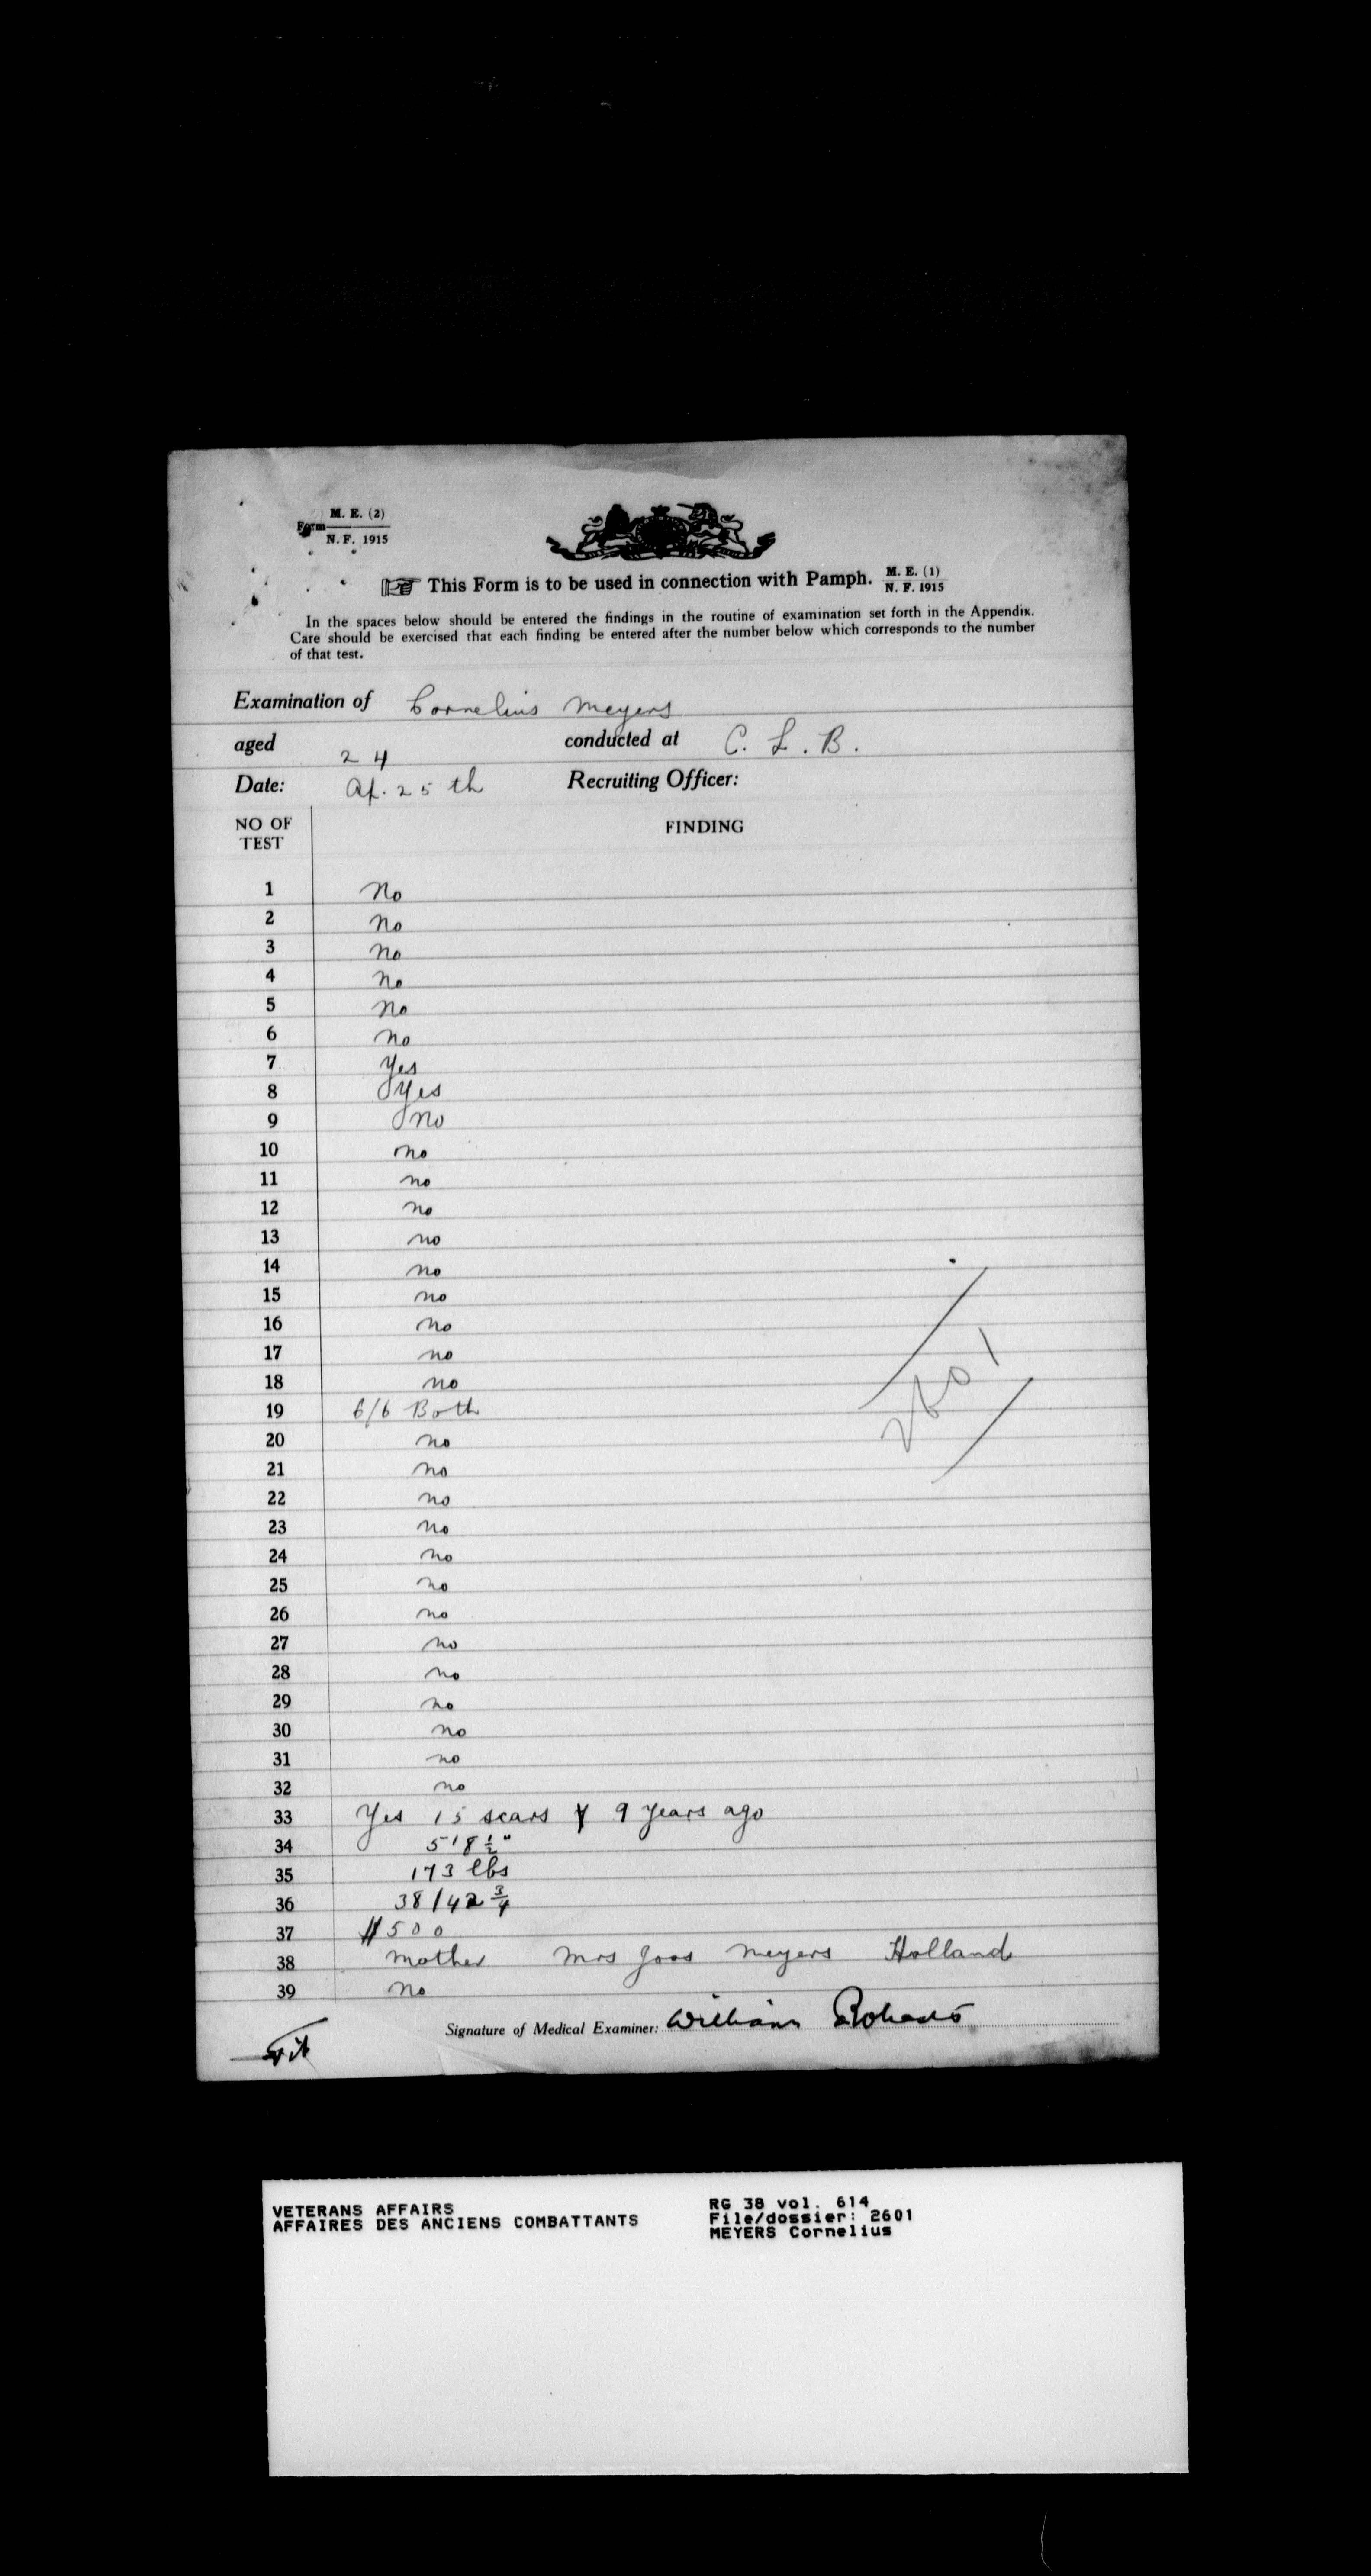 Form M. E. (2)
N. F. 1915
This Form is to be used in connection with Pamph. M. E. (1)
N. F. 1915
In the spaces below should be entered the findings in the routine of examination set forth in the Appendix.
Care should be exercised that each finding be entered after the number below which corresponds to the number
of that test.
Examination of Cornelius Meyers
aged 24 conducted at C. L. B.
Date: Ap. 25th Recruiting Officer:
NO OF TEST FINDING
1 No
2 No
3 No
4 No
5 No
6 No
7 Yes
8 Yes
9 No
10 no
11 no
12 no
13 no
14 no
15 no
16 no
17 no
18 no
19 6/6 Both
20 no
21 no
22 no
23 no
24 no
25 no
26 no
27 no
28 no
29 no
30 no
31 no
32 no
33 Yes 15 scars 9 years ago
34 5'8½"
35 173 lbs
36 38/42¾
37 $500
38 Mother Mrs Joos Meyers Holland
39 No
2601
Signature of Medical Examiner: William Roberts
Fit
VETERANS AFFAIRS
AFFAIRES DES ANCIENS COMBATTANTS
RG 38 vol. 614
File/dossier: 2601
MEYERS Cornelius